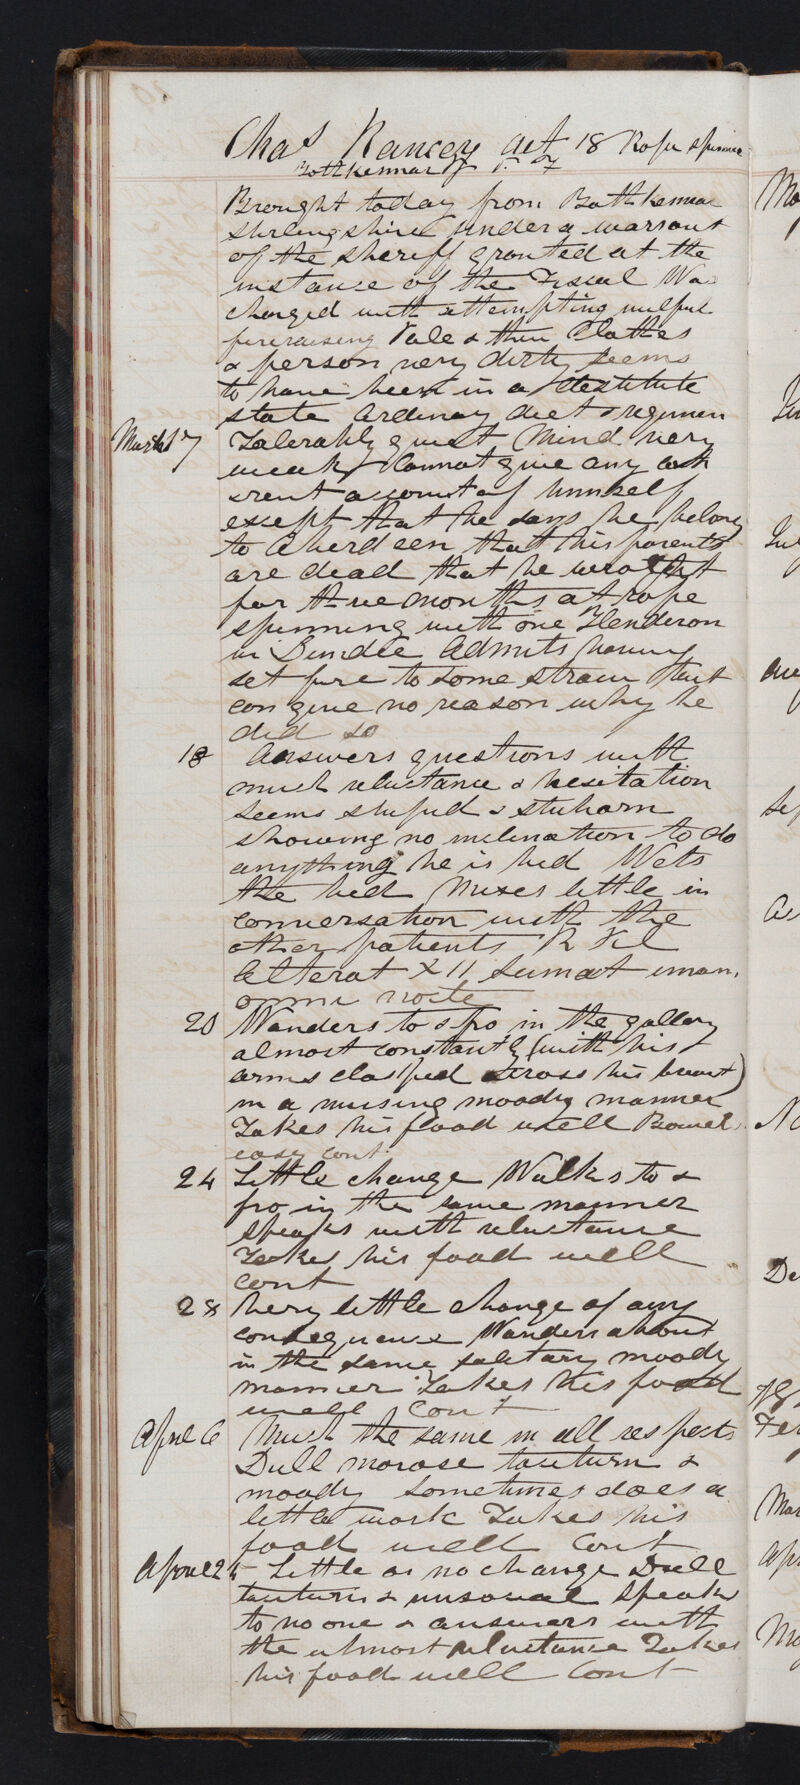 Chas Rancey aet 18 Rope spinner
Bothkennar
Brought today from Bothkennar
Stirlingshire under a warrant
of the Sheriff granted at the
instance of the Fiscal Was
charged with attempting wilful
fireraising Pale & thin Clothes
& person very dirty seems
to have been in a destitute
state Ordinary diet & regimen
March 17 Tolerably quiet Mind very
weak Cannot give any coh
erent account of himself
except that he says he belongs
to Aberdeen that his parents
are dead that he wrought
for three months at rope
spinning with one Henderson
in Dundee Admits having
set fire to some straw but
can give no reason why he
did so
18 Answers questions with
much reluctance & hesitation
seems stupid & stuborn
showing no inclination to do
anything he is bid Wets
the bed Mixes little in
conversation with the
other patients R Pil
Alterat X 11 Sumat unam
omni nocte
20 Wanders to & fro in the gallery
almost constantly (with his
arms clasped across his breast)
in a musing moody manner
Takes his food well Bowels
easy cont
24 Little change Walks to &
fro in the same manner
speaks with reluctance
Takes his food well
cont
28 Very little change of any
consequence Wanders about
in the same solitary moody
manner Takes his food
well Cont
April 6 Much the same in all respects
Dull morose taciturn &
moody sometimes does a
little work Takes his
food well Cont
April 24 Little or no change Dull
taciturn & unsocial speaks
to no one & answers with
the utmost reluctance Takes
his food well Cont